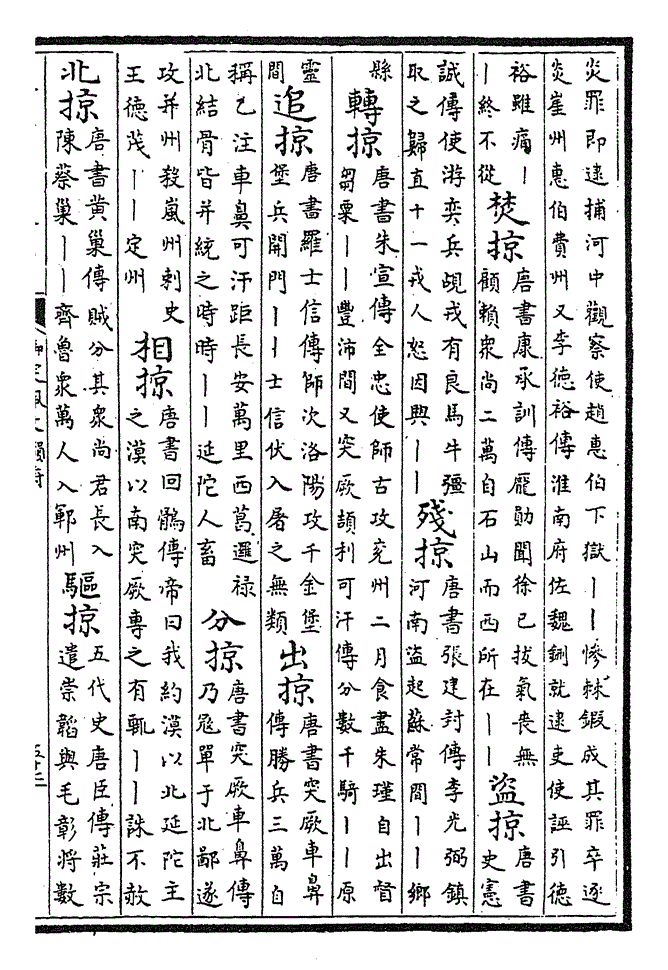 炎罪即逮捕河中觀察使趙惠伯下獄丨丨慘棘鍛成其罪卒逐
炎崖州惠伯費州又李德裕傳淮南府佐魏鉶就逮吏使誣引德
裕雖痛丨
丨終不從
焚掠
唐書康承訓傳龐勛聞徐已拔氣喪無
顧賴衆尚二萬自石山而西所在丨丨
盜掠
唐書
史憲
誠傳使游奕兵覘戎有良馬牛彊
取之歸直十一戎人怒因興丨丨
殘掠
唐書張建封傳李光弼鎮
河南盜起蘇常間丨丨鄉
縣
轉掠
唐書朱宣傳全忠使師古攻兖州二月食盡朱瑾自出督
芻粟丨丨豐沛間又突厥頡利可汗傳分數千騎丨丨原
靈
間
追掠
唐書羅士信傳師次洛陽攻千金堡
堡兵開門丨丨士信伏入屠之無類
出掠
唐書突厥車鼻
傳勝兵三萬自
稱乙注車鼻可汗距長安萬里西葛邏禄
北結骨皆并統之時時丨丨延陀人畜
分掠
唐書突厥車鼻傳
乃冦單于北鄙遂
攻并州殺嵐州刺史
王德茂丨丨定州
相掠
唐書回鶻傳帝曰我約漠以北延陀主
之漠以南突厥專之有輒丨丨誅不赦
北掠
唐書黃巢傳賊分其衆尚君長入
陳蔡巢丨丨齊魯衆萬人入鄆州
驅掠
五代史唐臣傳莊宗
遣崇韜與毛彰將數